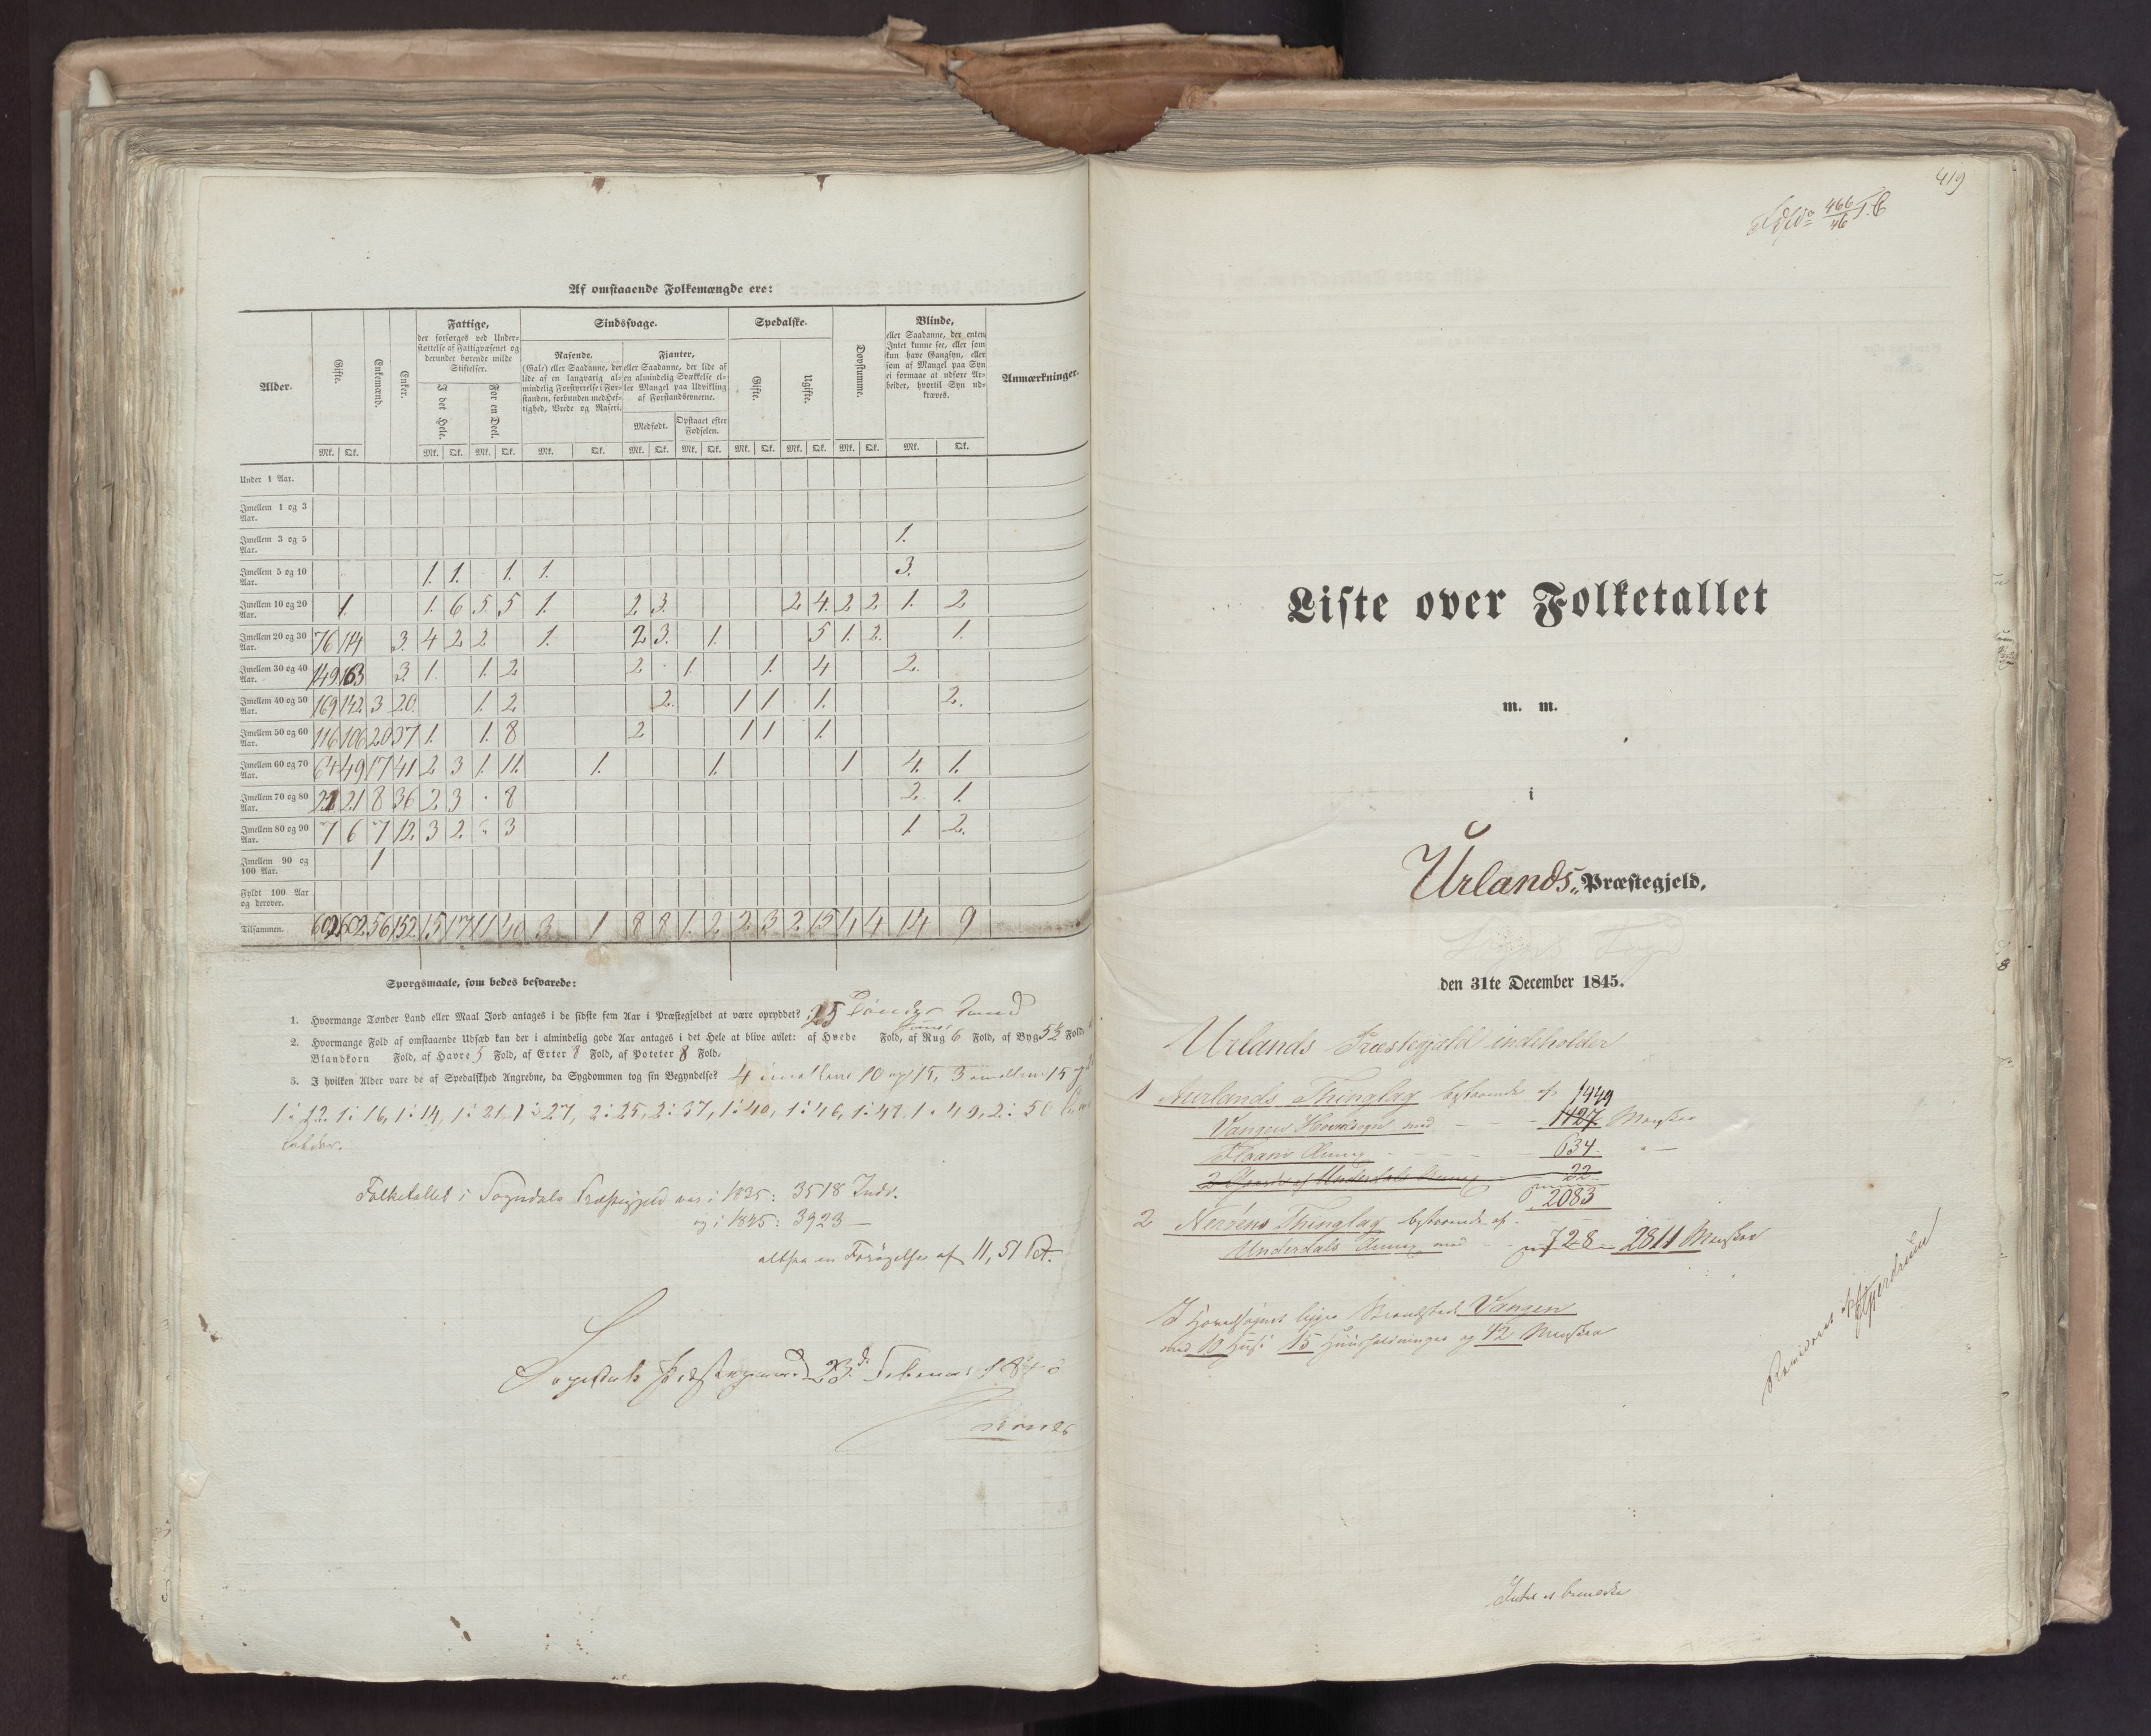 Af omstaaende Folkemængde ere:
Alder.
Gifte.
Enkemænd.
Enker.
Fattige,
der forsørges ved Under-
støttelse af Fattigvæsenet og
derunder hørende milde
Stiftelser.
I det Hele.
For en Deel.
Sindssvage.
Rasende.
(Gale) eller Saadanne, der
lide af en langvarig al-
mindelig Forstyrrelse i For-
standen, forbunden med Hef-
tighed, Vrede og Raseri.
Fjanter,
eller Saadanne, der lide af
en almindelig Svækkelse el-
ler Mangel paa Udvikling
af Forstandsevnerne.
Medfødt.
Opstaaet efter
Fødselen.
Spedalske.
Gifte.
Ugifte.
Døvstumme.
Blinde,
eller Saadanne, der enten
Intet kunne see, eller som
kun have Gangsyn, eller
som af Mangel paa Syn
ei formaae at udføre Ar-
beider, hvortil Syn ud-
kræves.
Anmærkninger.
Mk. Qk. Mk. Qk. Mk. Qk. Mk. Qk. Mk. Qk. Mk. Qk. Mk. Qk. Mk. Qk. Mk. Qk. Mk. Qk.
Under 1 Aar.
Imellem 1 og 3 Aar.
Imellem 3 og 5 Aar. 1.
Imellem 5 og 10 Aar. 1. 1. 1. 1. 3.
Imellem 10 og 20 Aar. 1. 1. 6 5 5 1. 2 3. 2 4. 2 2 1. 2
Imellem 20 og 30 Aar. 76 114 3. 4 2 2 1. 2 3. 1. 5 1. 2. 1.
Imellem 30 og 40 Aar. 149 163 3 1. 1. 2 2 1. 1. 4 2.
Imellem 40 og 50 Aar. 169 142 3 20. 1. 2 2. 1 1 1. 2.
Imellem 50 og 60 Aar. 116 106 20 37 1. 1. 8 2 1 1 1.
Imellem 60 og 70 Aar. 64 49 17 41 2 3 1. 11. 1. 1. 1 4. 1.
Imellem 70 og 80 Aar. 21 21 8 36 2 3 8 2. 1.
Imellem 80 og 90 Aar. 7 6 7 12. 3 2. 3 1. 2.
Imellem 90 og 100 Aar. 1
Fyldt 100 Aar og derover.
Tilsammen. 602 602 56 152. 15 17 11 40 3 1 8 8 1. 2 2 3 2 15 4 4 14 9
Spørgsmaale, som bedes besvarede:
1. Hvormange Tønder Land eller Maal Jord antages i de sidste fem Aar i Præstegjeldet at være opryddet? 25 Tønder Land
2. Hvormange Fold af omstaaende Udsæd kan der i almindelig gode Aar antages i det Hele at blive avlet: af Hvede Fold, af Rug 6 Fold, af Byg 5½ Fold,
Blandkorn Fold, af Havre 5 Fold, af Erter 8 Fold, af Poteter 8 Fold.
3. I hvilken Alder vare de af Spedalskhed Angrebne, da Sygdommen tog sin Begyndelse? 4 imellem 10 og 15, 3 imellem 15 og
1 i 12. 1 i 16, 1 i 14, 1 i 21. 1 i 27, 2 i 25, 2 i 37, 1 i 40, 1 i 46, 1 i 47. 1 i 49, 2 i 50
Folketallet i Sogndals Præstegjeld var i 1835: 3518 Indv.
og i 1845: 3923 —
altsaa en Forøgelse af 11,51 Pct.
Sogndals Præstegaard 23d Februar 184
419
466/46
Liste over Folketallet
m. m.
i
Urlands Præstegjeld,
den 31te December 1845.
Urlands Præstegjeld indeholder
1 Aurlands Thinglag bestaaende af 1449
Vangen Hovedsogn med 1427 Mennesker
Flaams Annex 634.
2 Gaarde af Underdals Annex 22
2083
2 Nerøens Thinglag bestaaende af
Underdals Annex med 728 2811 Mennesker
I Hovedsognet ligger Strandstedet Vangen
med 10 Huse 15 Huusholdninger og 42 Mennesker